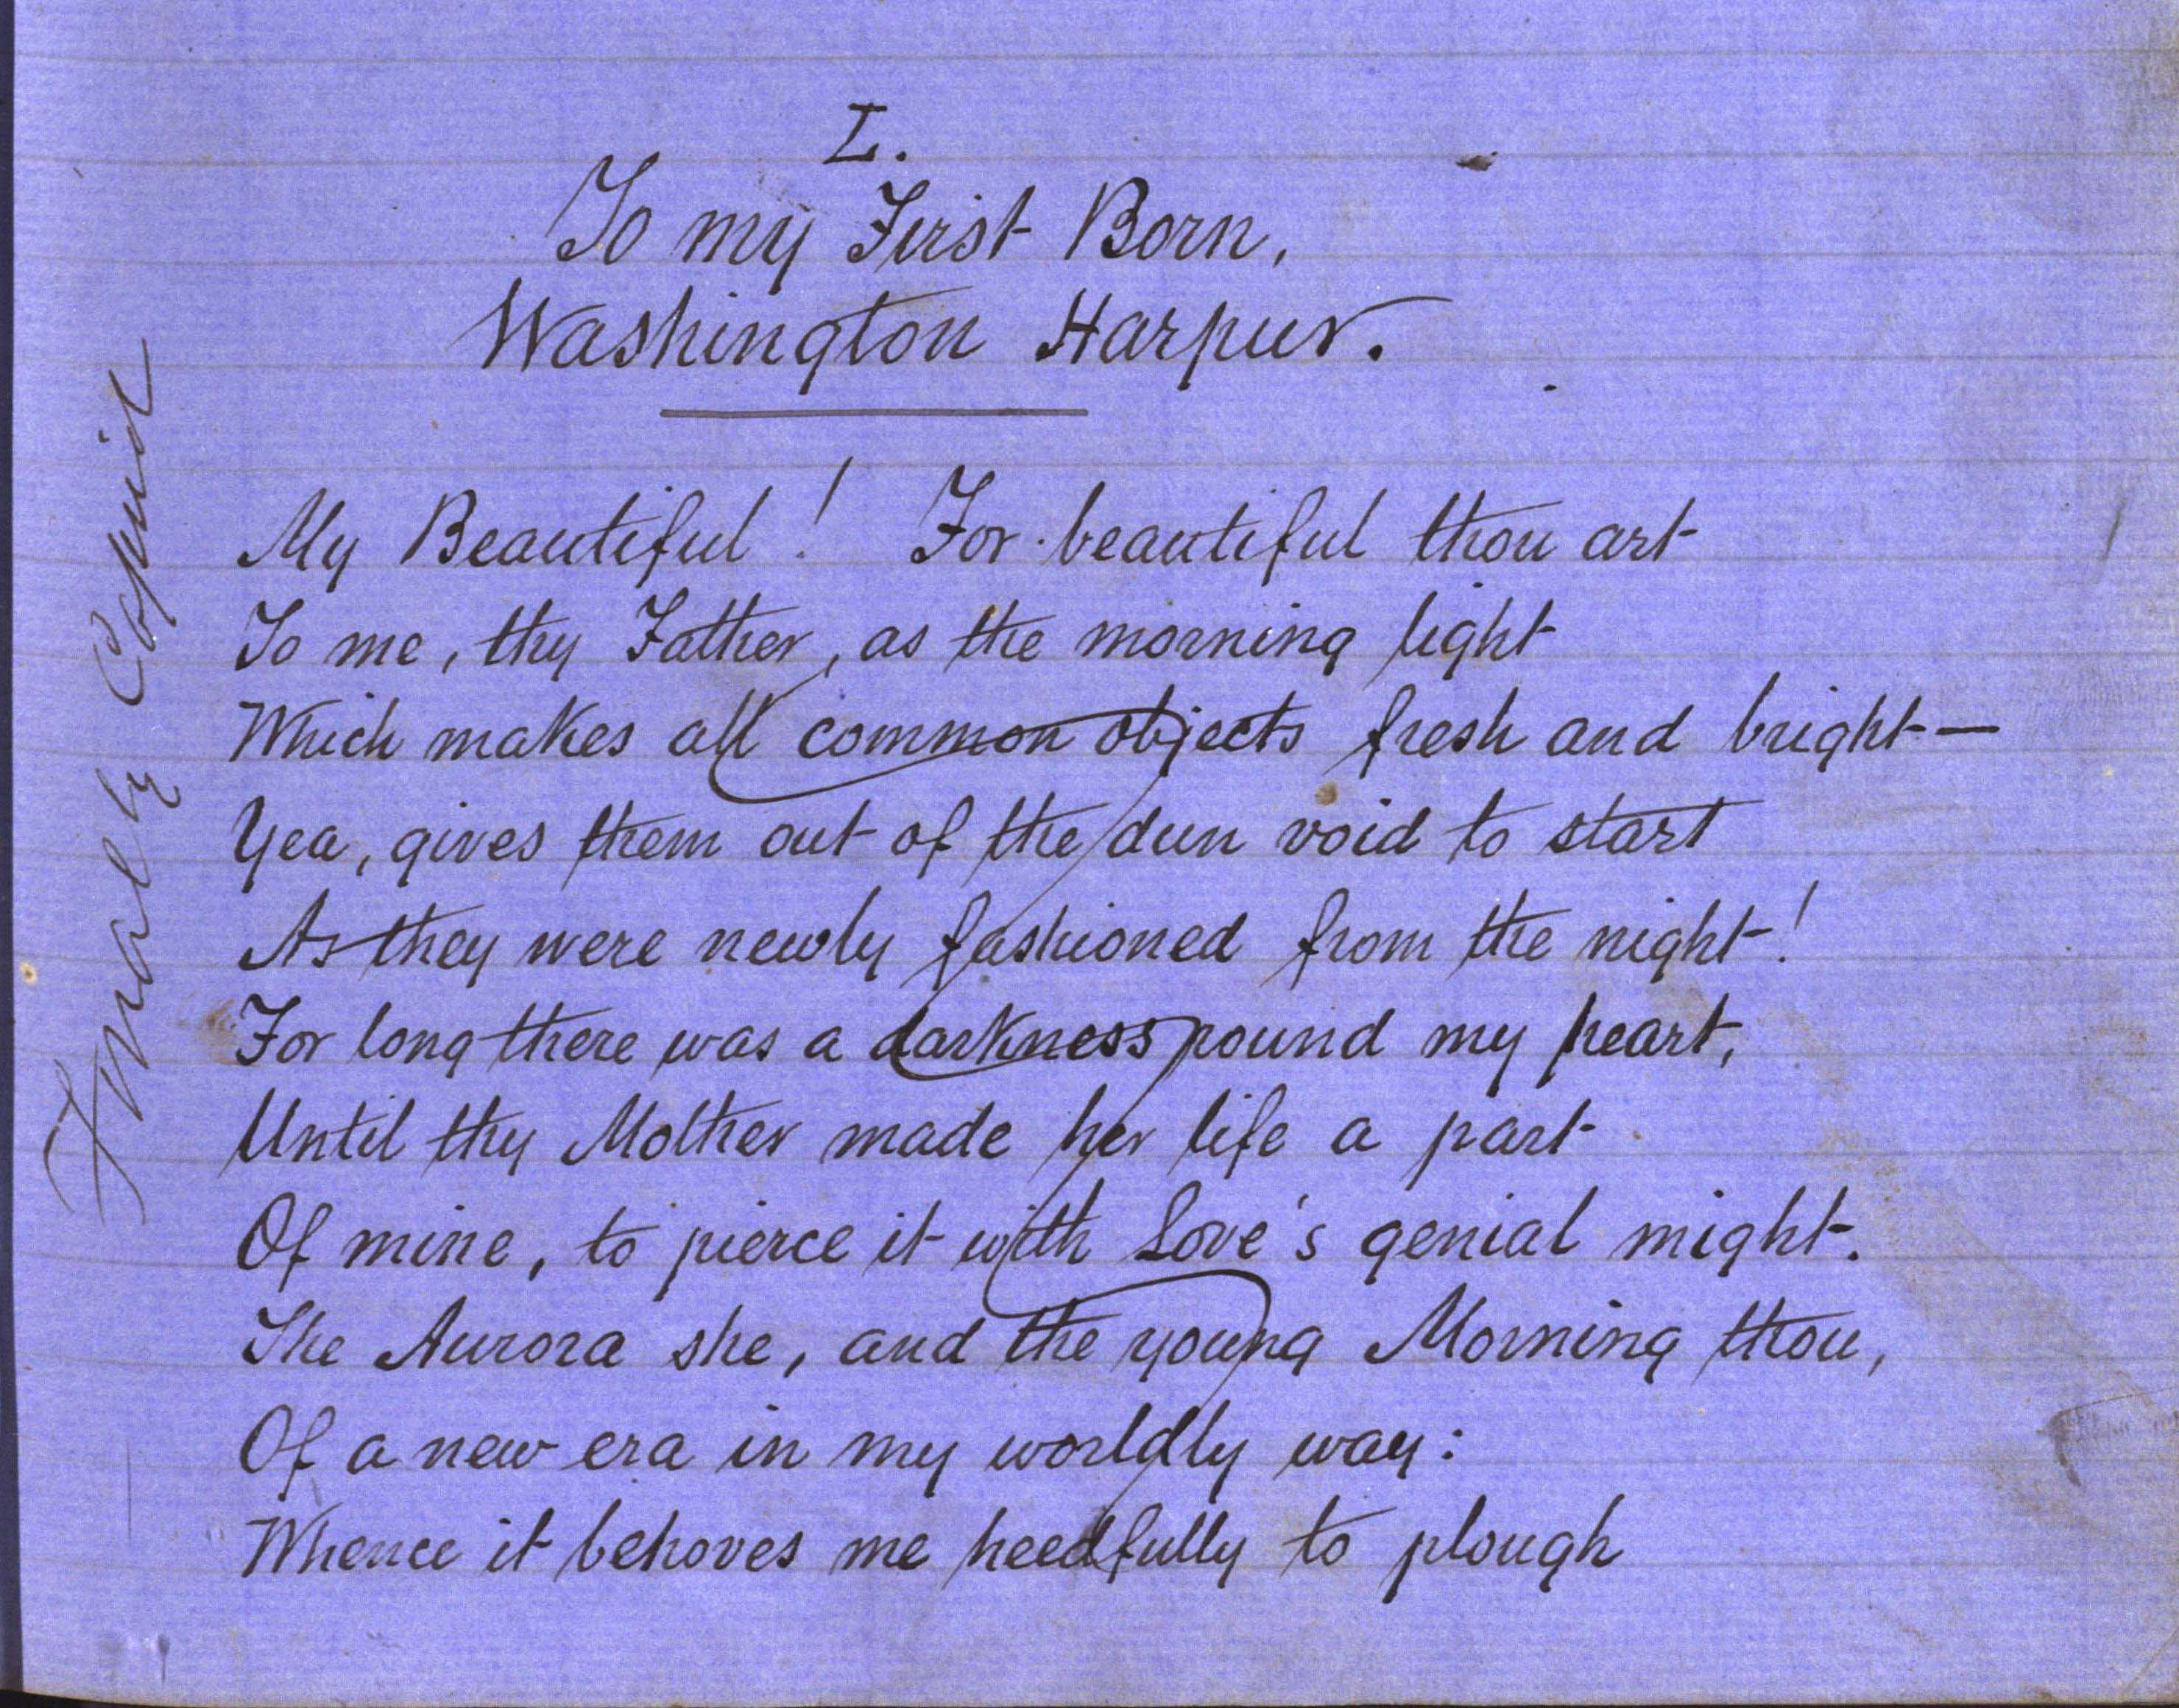 I.
To my First Born,
Washington Harpur.
My Beautiful! For beautiful thou art
To me, thy Father, as the morning light
Which makes all common objects fresh and bright—
Yea, gives them out of the dun void to start
As they were newly fashioned from the night!
For long there was a darkness round my heart,
Until thy Mother made her life a part
Of mine, to pierce it with Love's genial might.
The Aurora she, and the young Morning thou,
Of a new era in my worldly way:
Whence it behoves me heedfully to plough
Finally Copied